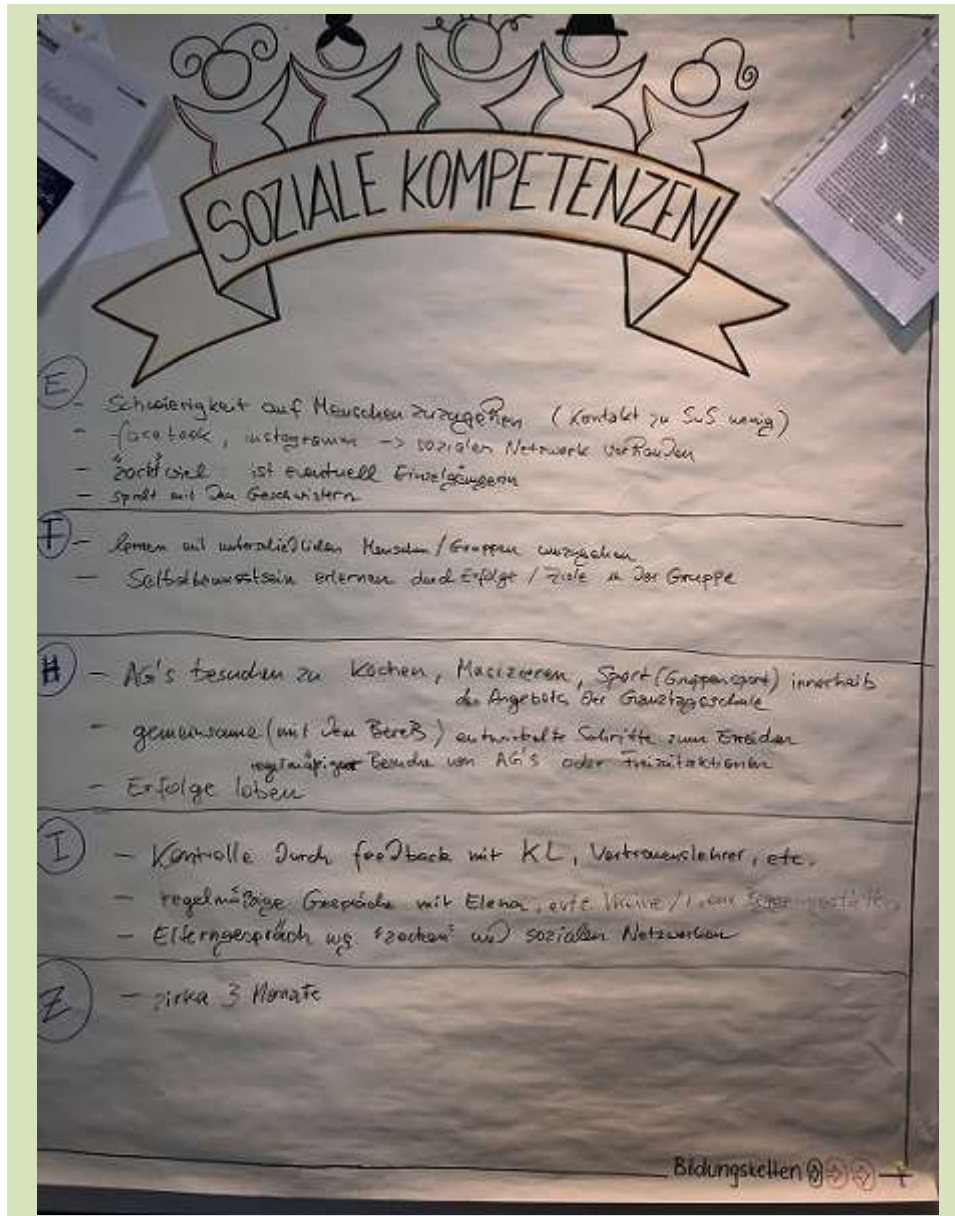 SOZIALE KOMPETENZEN
E
- Schwierigkeit auf Menschen zuzugehen (Kontakt zu SuS wenig)
- facebook, instagramm -> sozialen Netzwerk vorhanden
- "zockt" viel ist eventuell Einzelgängerin
- spielt mit den Geschwistern
F
- lernen mit unterschiedlichen Menschen/Gruppen umzugehen
- Selbstbewusstsein erlernen durch Erfolge / Ziele in der Gruppe
H
- AG's besuchen zu Kochen, Musizieren, Sport (Gruppensport) innerhalb
des Angebots der Ganztagsschule
- gemeinsame (mit dem BereB) entwickelte Schritte zum
regelmäßiger Besuche von AG's oder Freizeitaktionen
- Erfolge loben
I
- Kontrolle durch feedback mit KL, Vertrauenslehrer, etc.
- regelmäßige Gespräche mit Elena,
- Elterngespräch wg "zocken" und sozialen Netzwerken
Z
- zirka 3 Monate
Bildungsketten